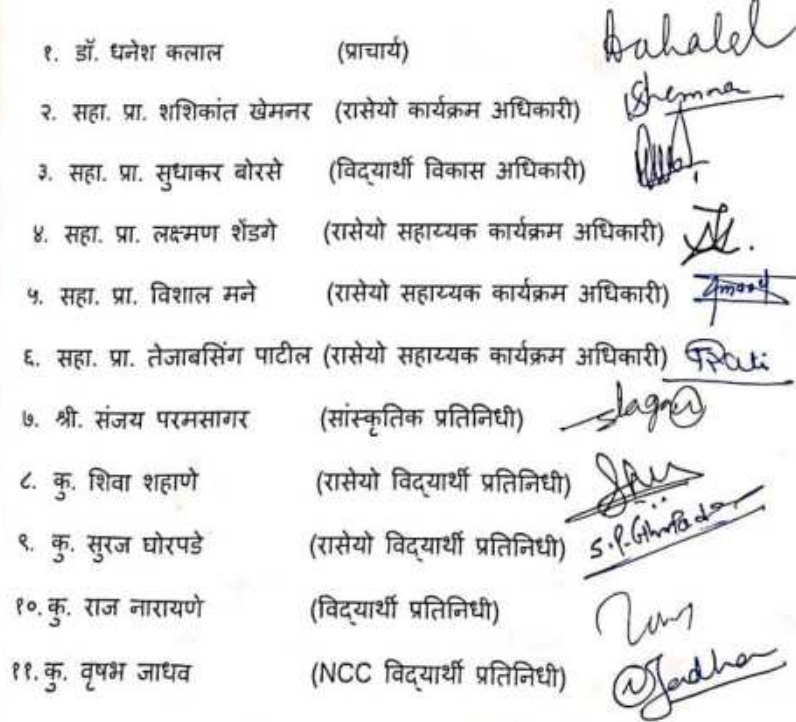 १. डॉ. धनेश कलाल (प्राचार्य)
२. सहा. प्रा. शशिकांत खेमनर (रासेयो कार्यक्रम अधिकारी)
३. सहा. प्रा. सुधाकर बोरसे (विद्यार्थी विकास अधिकारी)
४. सहा. प्रा. लक्ष्मण शेंडगे (रासेयो सहाय्यक कार्यक्रम अधिकारी)
५. सहा. प्रा. विशाल मने (रासेयो सहाय्यक कार्यक्रम अधिकारी)
६. सहा. प्रा. तेजाबसिंग पाटील (रासेयो सहाय्यक कार्यक्रम अधिकारी)
७. श्री. संजय परमसागर (सांस्कृतिक प्रतिनिधी)
८. कु. शिवा शहाणे (रासेयो विद्यार्थी प्रतिनिधी)
९. कु. सुरज घोरपडे (रासेयो विद्यार्थी प्रतिनिधी)
१०. कु. राज नारायणे (विद्यार्थी प्रतिनिधी)
११. कु. वृषभ जाधव (NCC विद्यार्थी प्रतिनिधी)